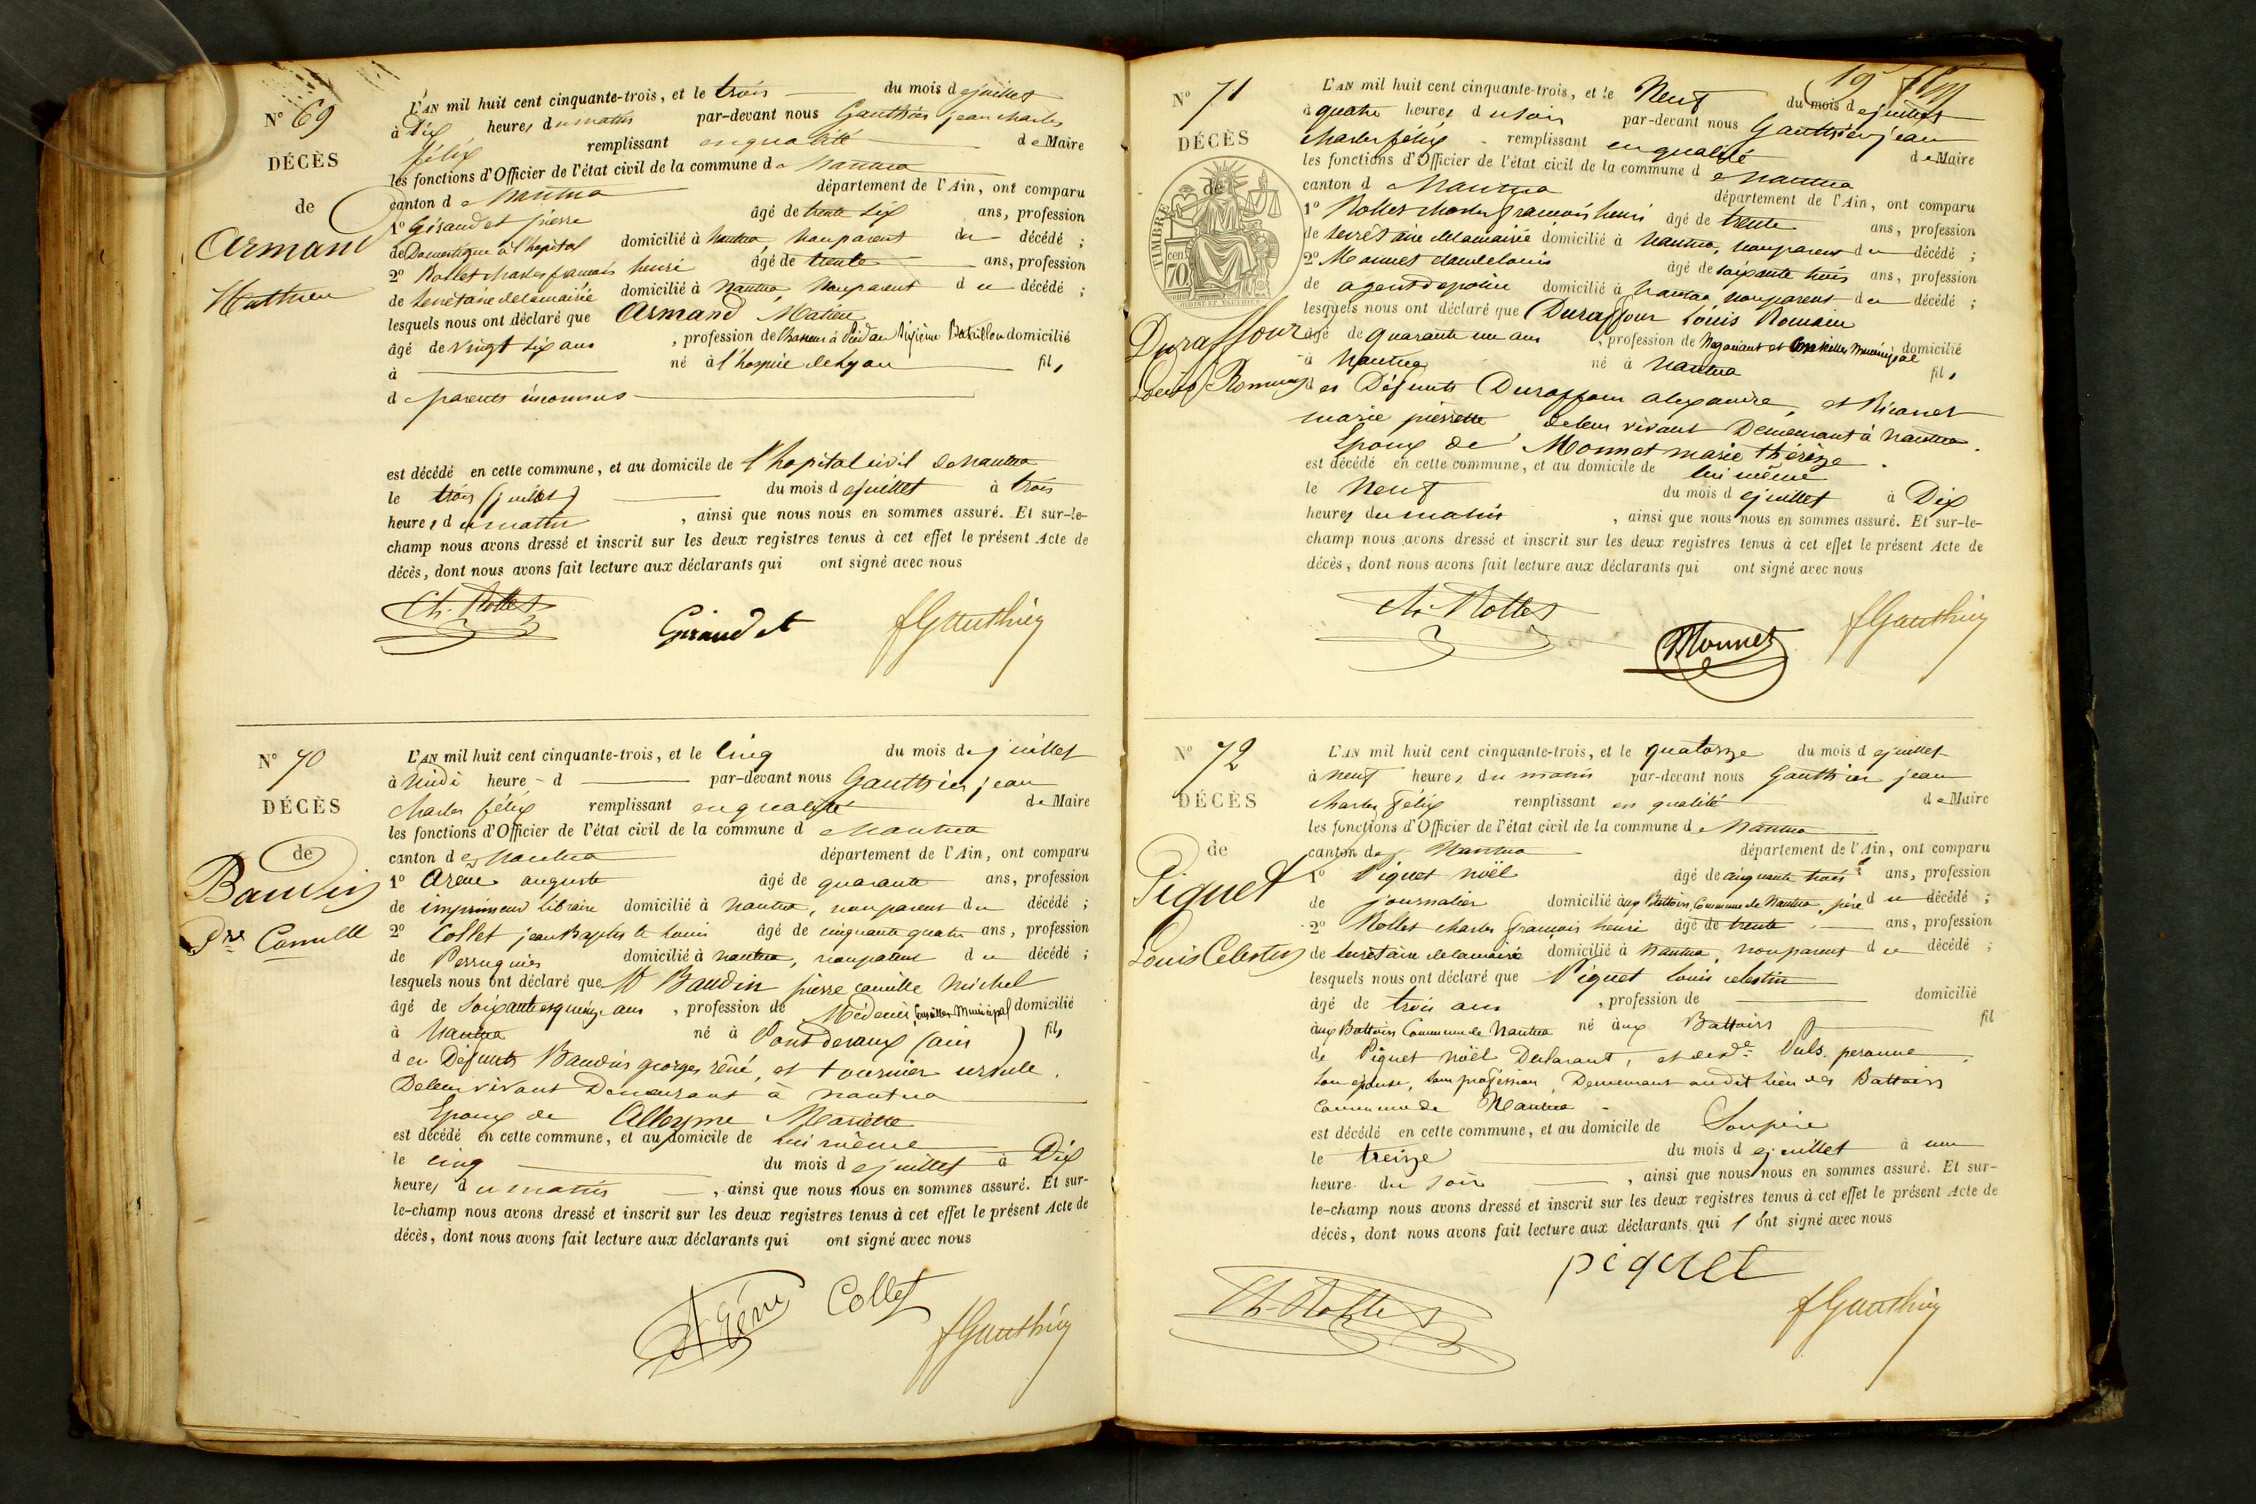 N° 69
DÉCÈS
de
Armand
Mathieu
L'AN mil huit cent cinquante-trois, et le trois du mois de juillet
à Dix heures du matin par-devant nous Gauthier jean charles
félix remplissant en qualité de Maire
les fonctions d'Officier de l'état civil de la commune de Nantua
canton de Nantua département de l'Ain, ont comparu
1° Giraudet pierre âgé de trente six ans, profession
de Domestique à l'hopital domicilié à Nantua, non parent du décédé ;
2° Rollet charles françois henri âgé de trente ans, profession
de secrétaire de la mairie domicilié à Nantua, non parent du décédé ;
lesquels nous ont déclaré que Armand Matieu
âgé de vingt six ans, profession de Chasseur à Pied au Dixième Bataillon domicilié
à né à l'hospice de Lyon fils
de parents inconnus
est décédé en cette commune, et au domicile de l'hopital civil de nantua
le trois (juillet) du mois de juillet à trois
heures du matin, ainsi que nous nous en sommes assuré. Et sur-le-
champ nous avons dressé et inscrit sur les deux registres tenus à cet effet le présent Acte de
décès, dont nous avons fait lecture aux déclarants qui ont signé avec nous
Ch. Rollet Giraudet f Gauthier
N° 70
DÉCÈS
de
Baudin
Pre Camille
L'AN mil huit cent cinquante-trois, et le cinq du mois de juillet
à Midi heure d par-devant nous Gauthier jean
charles félix remplissant en qualité de Maire
les fonctions d'Officier de l'état civil de la commune de Nantua
canton de Nantua département de l'Ain, ont comparu
1° Arène auguste âgé de quarante ans, profession
de imprimeur libraire domicilié à nantua, non parent du décédé ;
2° Collet jean Baptiste Louis âgé de cinquante quatre ans, profession
de Perruquier domicilié à nantua, non parent du décédé ;
lesquels nous ont déclaré que Mr Baudin pierre camille Michel
âgé de soixante et quinze ans, profession de Médecin, Conseiller Municipal domicilié
à Nantua né à Pont devaux (ain) fils
de Défunts Baudin georges réné, et tournier ursule.
De leur vivant Demeurant à nantua
Epoux de Alleyme Mariette
est décédé en cette commune, et au domicile de lui même
le cinq du mois de juillet à Dix
heures du matin, ainsi que nous nous en sommes assuré. Et sur-
le-champ nous avons dressé et inscrit sur les deux registres tenus à cet effet le présent Acte de
décès, dont nous avons fait lecture aux déclarants qui ont signé avec nous
A Arène Collet f Gauthier
N° 71
DÉCÈS
de
TIMBRE
cen 70
Duraffour
Louis Romain
19
L'AN mil huit cent cinquante-trois, et le Neuf du mois de juillet
à quatre heures du soir par-devant nous Gauthier jean
charles félix remplissant en qualité de Maire
les fonctions d'Officier de l'état civil de la commune de Nantua
canton de Nantua département de l'Ain, ont comparu
1° Rollet charles françois henri âgé de trente ans, profession
de secrétaire de la mairie domicilié à Nantua, non parent du décédé ;
2° Monnet claude louis âgé de soixante trois ans, profession
de agent de police domicilié à Nantua, non parent du décédé ;
lesquels nous ont déclaré que Duraffour Louis Romain
âgé de quarante un ans, profession de Negociant et Conseiller Municipal domicilié
à Nantua né à Nantua fils
des Défunts Duraffour alexandre, et Ricanet
marie pierrette, de leur vivant Demeurant à nantua.
Epoux de Monnet marie thérèze.
est décédé en cette commune, et au domicile de lui même
le Neuf du mois de juillet à Dix
heures du matin, ainsi que nous nous en sommes assuré. Et sur-le-
champ nous avons dressé et inscrit sur les deux registres tenus à cet effet le présent Acte de
décès, dont nous avons fait lecture aux déclarants qui ont signé avec nous
Ch. Rollet Monnet f Gauthier
N° 72
DÉCÈS
de
Piquet
Louis Celestin
L'AN mil huit cent cinquante-trois, et le quatorze du mois de juillet
à neuf heures du matin par-devant nous Gauthier jean
charles félix remplissant en qualité de Maire
les fonctions d'Officier de l'état civil de la commune de Nantua
canton de Nantua département de l'Ain, ont comparu
1° Piquet noël âgé de cinquante trois ans, profession
de journalier domicilié aux Battoirs, Commune de Nantua, père du décédé ;
2° Rollet charles françois henri âgé de trente ans, profession
de secrétaire de la mairie domicilié à nantua, non parent du décédé ;
lesquels nous ont déclaré que Piquet louis celestin
âgé de trois ans, profession de domicilié
aux Battoirs Commune de Nantua né aux Battoirs fil
de Piquet noël Déclarant, et de de Vuls peronne
son épouse, sans profession, Demeurant au dit lieu des Battoirs
Commune de Nantua
est décédé en cette commune, et au domicile de Son père
le treize du mois de juillet à une
heure du soir, ainsi que nous nous en sommes assuré. Et sur-
le-champ nous avons dressé et inscrit sur les deux registres tenus à cet effet le présent Acte de
décès, dont nous avons fait lecture aux déclarants qui l'ont signé avec nous
piquet
Ch. Rollet f Gauthier